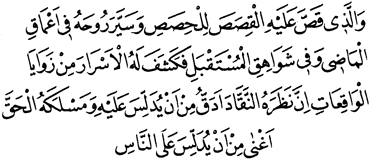 وَالَّذِى قَصَّ عَلَيْهِ الْقِصَصَ لِلْحِصَصِ وَسَيَّرَ رُوحَهُ فِى اَعْمَاقِ
الْمَاضِى وَفِى شَوَاهِقِ الْمُسْتَقْبَلِ فَكَشَفَ لَهُ الْاَسْرَارَ مِنْ زَوَايَا
الْوَاقِعَاتِ اِنَّ نَظَرَهُ النَّقَّادَ اَدَقُّ مِنْ اَنْ يُدَلَّسَ عَلَيْهِ وَمَسْلَكَهُ الْحَقَّ
اَغْنٰى مِنْ اَنْ يُدَلِّسَ عَلَى النَّاسِ